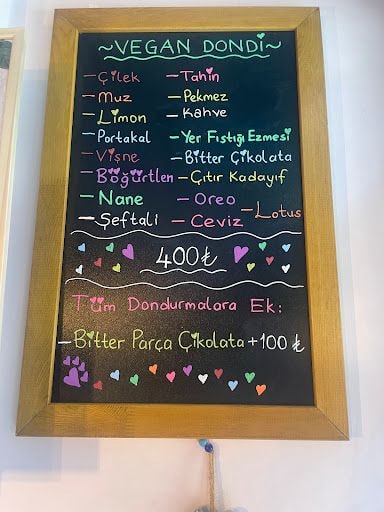 ~VEGAN DONDİ~
-Çilek
-Muz
-Limon
-Portakal
-Vişne
-Böğürtlen
-Nane
-Şeftali
-Tahin
-Pekmez
-Kahve
-Yer Fıstığı Ezmesi
-Bitter Çikolata
-Çıtır Kadayıf
-Oreo
-Ceviz
-Lotus
400₺
Tüm Dondurmalara Ek:
-Bitter Parça Çikolata +100 ₺